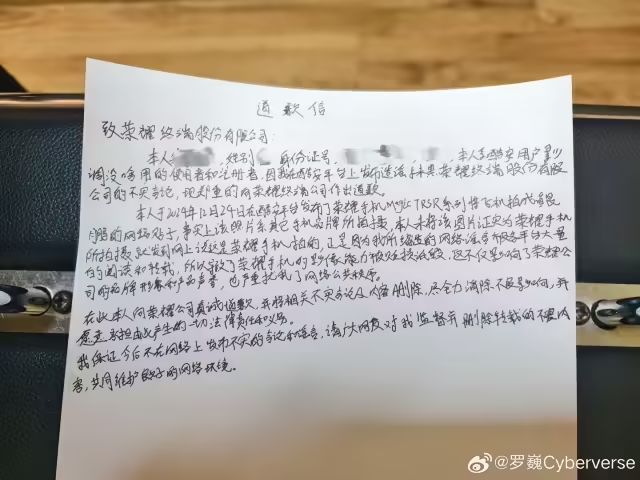 道歉信
致荣耀终端股份有限公司:
本人 ,性别 身份证号, ,本人系酷安用户
调没啥用的使用者和注册者,因我在酷安平台上发布造谣 荣耀终端股份有限
公司的不实言论,现郑重的向荣耀终端公司作出道歉。
本人于2024年12月24日在酷安平台发布了荣耀手机Magic 7RSR系列 拍
的网络贴子,事实上该照片系其它手机品牌所拍摄,本人未将该图片证实为荣耀手机
所拍摄就发到网上说这是荣耀手机拍的,正是因为我所编造的网络谣言被各平台大量
的阅读和转载,所以导致了荣耀手机的影像能力被贬损 ,这不仅影响了荣耀公
司的品牌形象和产品声誉,也严重扰乱了网络公共秩序。
在此本人向荣耀公司真诚地道歉,并将相关不实言论及内容删除,尽全力消除不良影响,并
愿意承担由此产生的一切法律责任和义务。
我保证今后不在网络上发布不实的言论和谣言,请广大网友对我监督并删除转载的不实内
容,共同维护良好的网络环境。
@罗巍Cyberverse